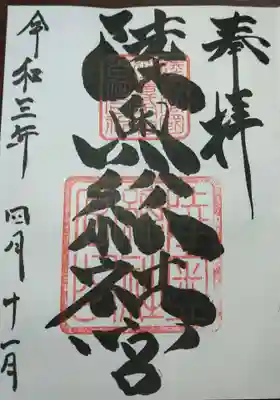 奉拝
陸奥総社宮
令和三年
四月十一日